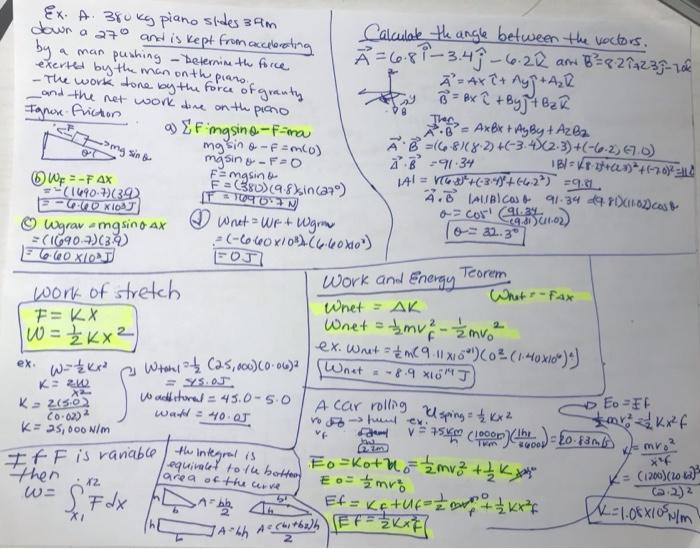 Ex. A. 380 kg piano slides 3.9m
down a 27° and is kept from accelerating
by a man pushing - Determine the force
exerted by the man on the piano.
- The work done by the force of gravity
and the net work done on the piano
Ignore friction
F
mg sin θ
θ
a) ΣF = mg sin θ - F = ma
mg sin θ - F = m(0)
mg sin θ - F = 0
F = mg sin θ
F = (380)(9.8) sin(27°)
F = 1690.7 N
(b) WF = -F Δx
= -(1690.7)(3.9)
= -6.60 x 10³ J
(c) Wgrav = mg sin θ Δx
= (1690.7)(3.9)
= 6.60 x 10³ J
(d) Wnet = WF + Wgrav
= (-6.60 x 10³) + (6.60 x 10³)
= 0 J
Calculate the angle between the vectors.
A = 6.8 i - 3.4 j - 6.2 k and B = 8.2 i + 2.3 j - 7.0 k
A = Ax i + Ay j + Az k
B = Bx i + By j + Bz k
Then
A · B = AxBx + AyBy + AzBz
A · B = (6.8)(8.2) + (-3.4)(2.3) + (-6.2)(-7.0)
A · B = 91.34
|B| = √(8.2)² + (2.3)² + (-7.0)² = 11.02
|A| = √(6.8)² + (-3.4)² + (-6.2)² = 9.81
A · B = |A||B| cos θ 91.34 = (9.81)(11.02) cos θ
θ = cos⁻¹ (91.34 / (9.81)(11.02))
θ = 32.3°
work of stretch
F = Kx
W = ½ Kx²
ex. W = ½ Kx²
K = 2W / x²
K = 2(5.0) / (0.02)²
K = 25,000 N/m
Wtotal = ½ (25,000)(0.06)²
= 45.0 J
Wadditional = 45.0 - 5.0
Wadd = 40.0 J
Work and Energy Teorem
Wnet = -FΔx
Wnet = ΔK
Wnet = ½ mvf² - ½ mv0²
ex. Wnet = ½ m (9.11 x 10⁻³¹)(0² - (1.40 x 10⁶)²)
Wnet = -8.9 x 10⁻¹⁹ J
If F is variable
then
W = ∫ x1 x2 F dx
the integral is
equivalent to the bottom
area of the curve
h
b
A = bh / 2
h
b
A = bh
A = (b1 + b2) h / 2
A car rolling
Uspring = ½ Kx²
ex.
V = 75 Km/h (1000m / 1Km)(1hr / 3600s) = 20.83 m/s
2.2m
E0 = K0 + U0 = ½ mv0² + ½ Kx0²
E0 = ½ mv0²
Ef = Kf + Uf = ½ mvf² + ½ Kx²f
Ef = ½ Kx²f
E0 = Ef
½ mv0² = ½ Kx²f
K = mv0² / x²f
K = (1200)(20.83)² / (2.2)²
K = 1.08 x 10⁵ N/m